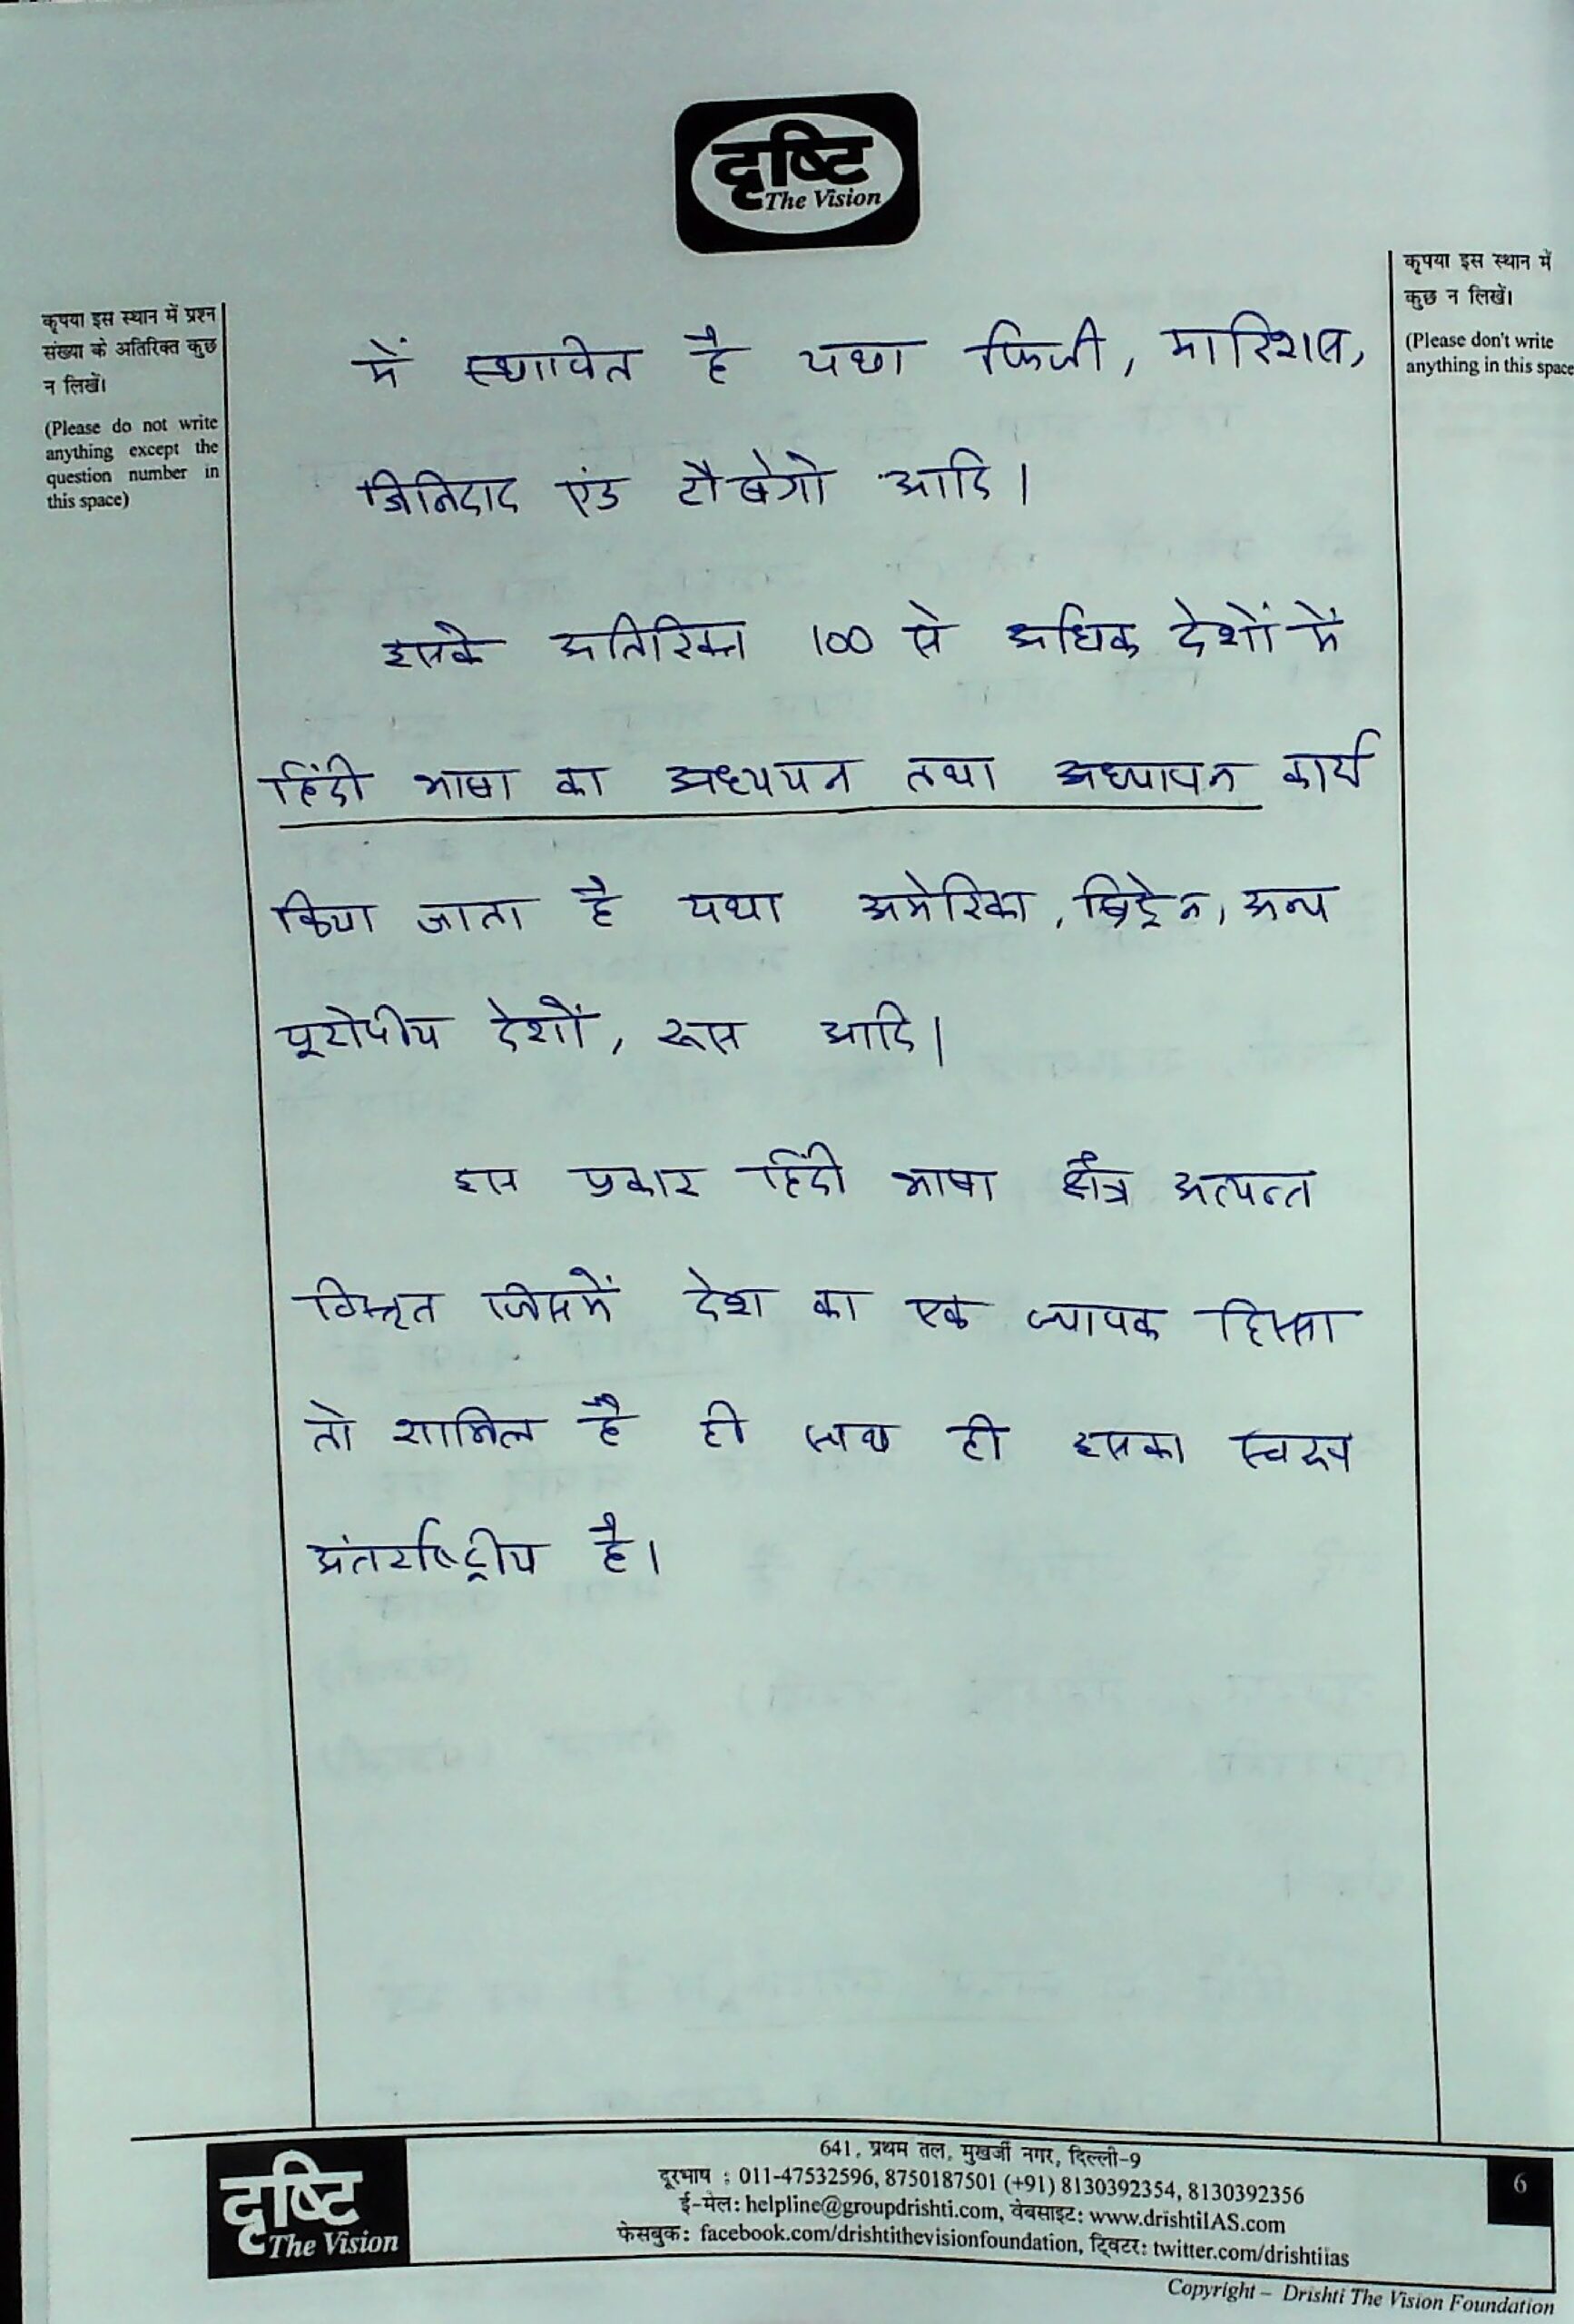 दृष्टि
The Vision
कृपया इस स्थान में प्रश्न
संख्या के अतिरिक्त कुछ
न लिखें।
(Please do not write
anything except the
question number in
this space)
कृपया इस स्थान में
कुछ न लिखें।
(Please don't write
anything in this space
में स्थापित है यथा फिजी, मारिशस,
त्रिनिदाद एंड टौबेगो आदि।
इसके अतिरिक्त 100 से अधिक देशों में
हिंदी भाषा का अध्ययन तथा अध्यापन कार्य
किया जाता है यथा अमेरिका, ब्रिटेन, अन्य
यूरोपीय देशों, रूस आदि।
इस प्रकार हिंदी भाषा क्षेत्र अत्यन्त
विस्तृत जिसमें देश का एक व्यापक हिस्सा
तो शामिल है ही साथ ही इसका स्वरूप
अंतर्राष्ट्रीय है।
दृष्टि
The Vision
641, प्रथम तल, मुखर्जी नगर, दिल्ली-9
दूरभाष : 011-47532596, 8750187501 (+91) 8130392354, 8130392356
ई-मेल: helpline@groupdrishti.com, वेबसाइट: www.drishtiIAS.com
फेसबुक: facebook.com/drishtithevisionfoundation, ट्विटर: twitter.com/drishtiias
6
Copyright – Drishti The Vision Foundation